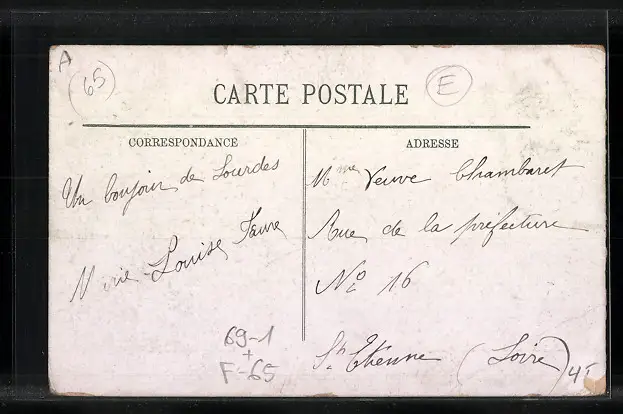 A
65
E
CARTE POSTALE
CORRESPONDANCE
Un bonjour de Lourdes
Marie-Louise Faure
69-1
+
F-65
ADRESSE
Mme Veuve Chambaret
Rue de la préfecture
No 16
St Etienne (Loire)